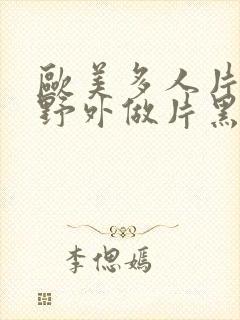 歐美多人片
野外做片黑
李偲嫣